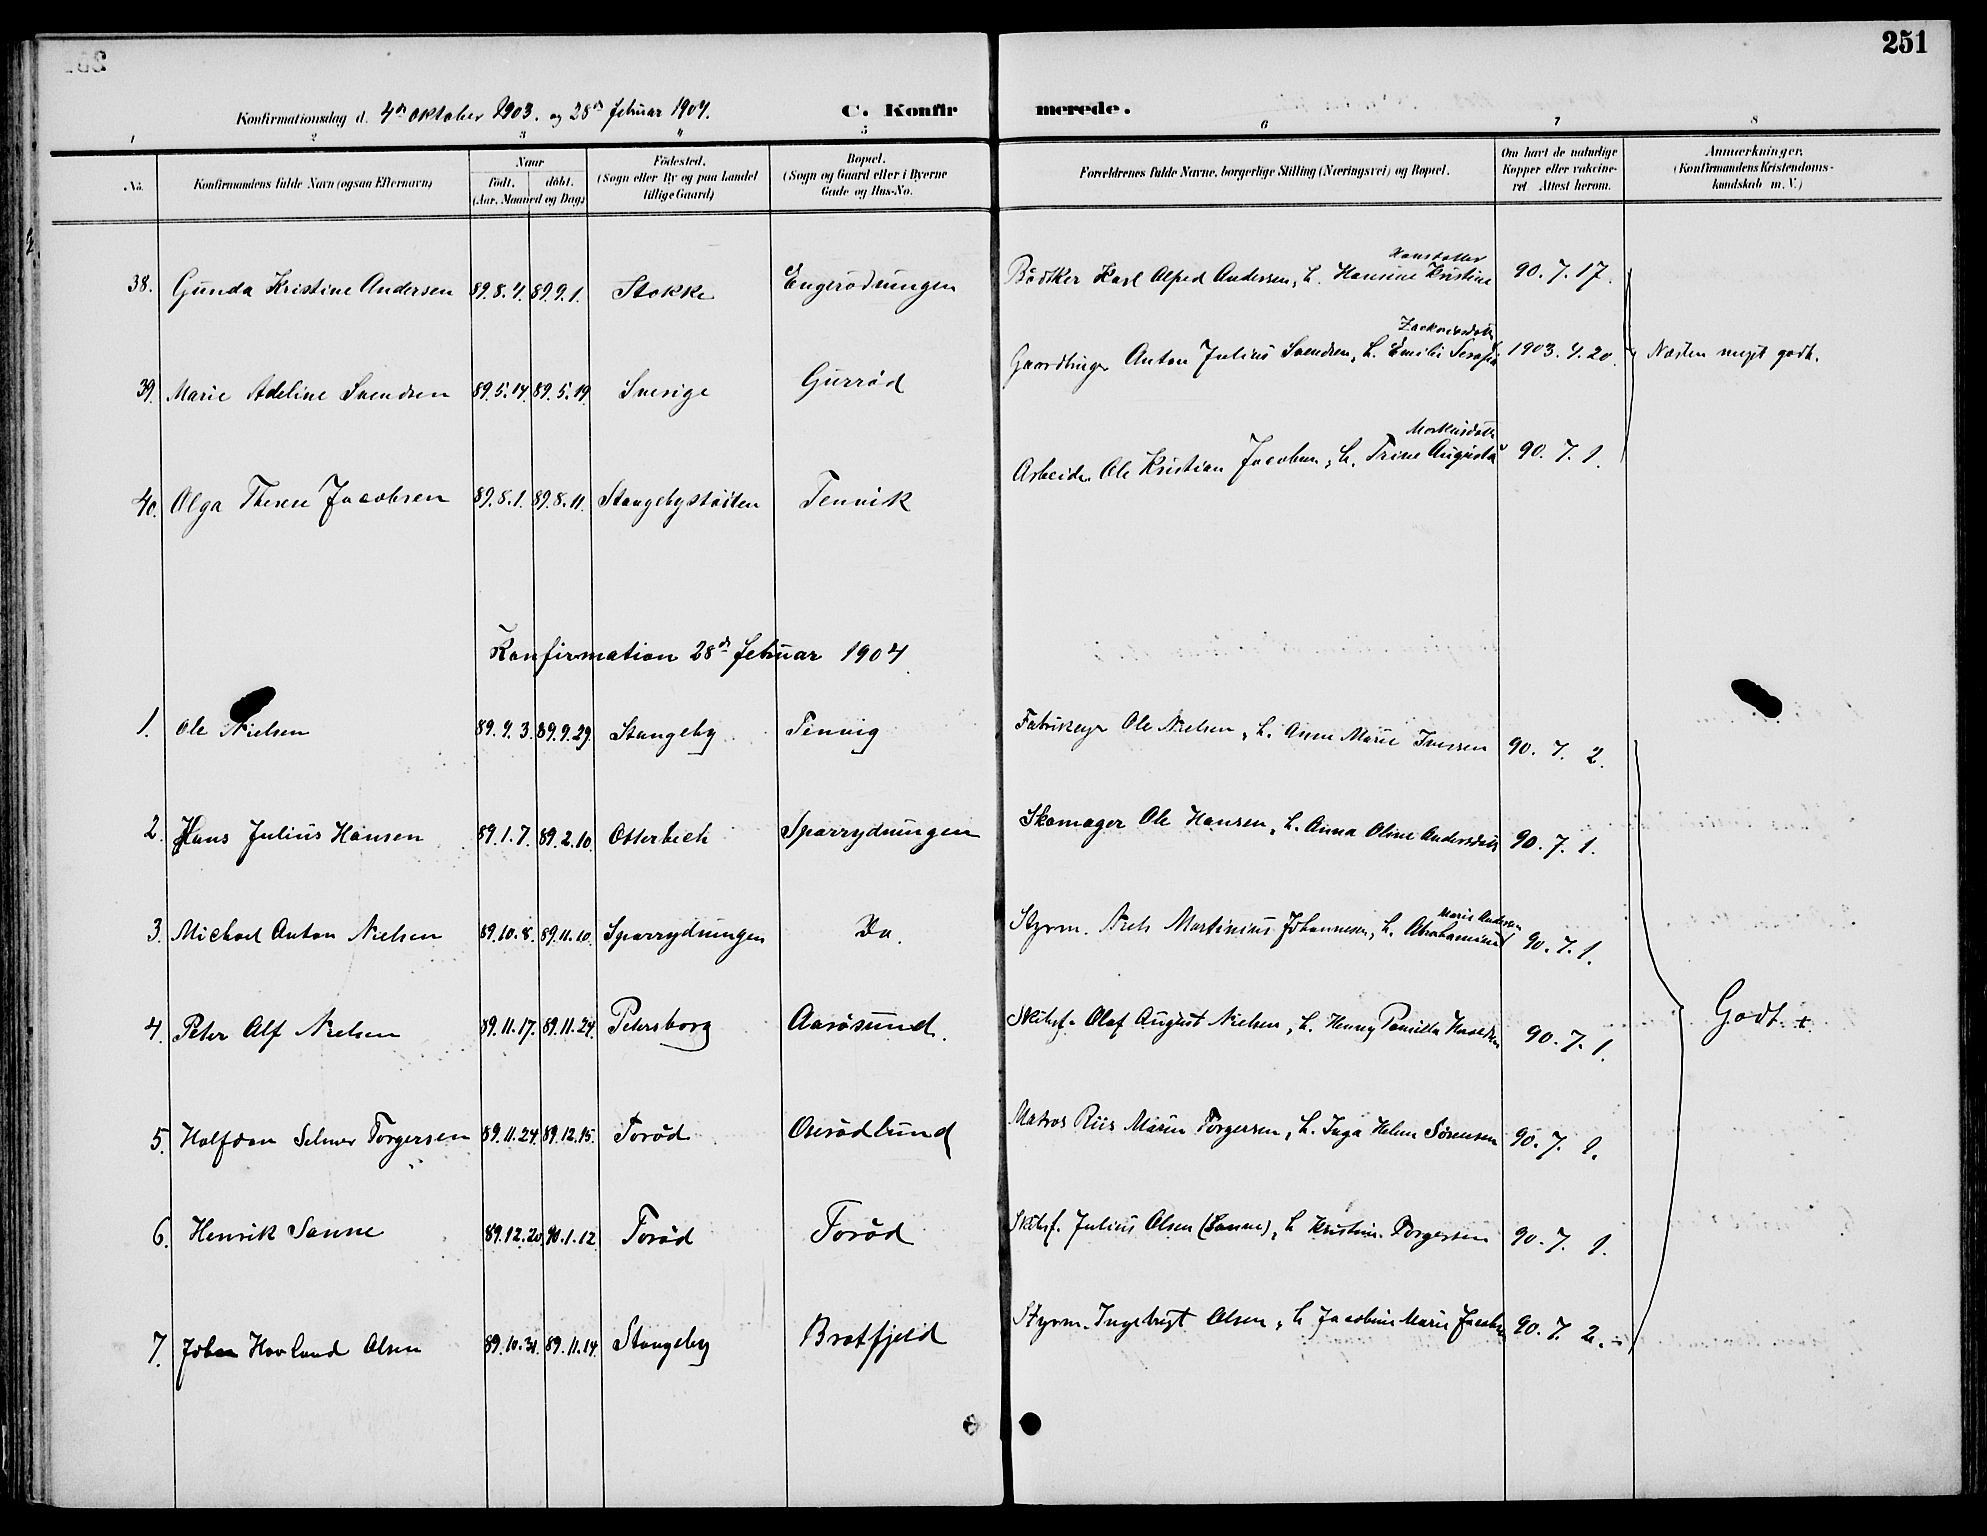 251
Konfirmationsdag d. 4de oktober 1903. og 28de februar 1904.
C. Konfirmerede.
1 2 3 4 5 6 7 8
No.
Konfirmandens fulde Navn (ogsaa Efternavn)
Naar
födt. döbt.
(Aar, Maaned og Dag)
Födested.
(Sogn eller By og paa Landet
tillige Gaard)
Bopæl.
(Sogn og Gaard eller i Byerne
Gade og Hus-No.
Forældrenes fulde Navne, borgerlige Stilling (Næringsvei) og Bopæl.
Om havt de naturlige
Kopper eller vakcine-
ret Attest herom.
Anmærkninger.
(Konfirmandens Kristendoms-
kundskab m. V.)
38. Gunda Kristine Andersen 89.8.4. 89.9.1. Stokke Engerødningen Bödtker Karl Alfred Andersen, h. Hansine Kristine Hansdatter 90.7.17.
39. Marie Adeline Svendsen 89.5.14. 89.5.19. Sverige Gurrød Gaardbruger Anton Julius Svendsen, h. Emilie 1903.4.20. Næsten meget godt.
40. Olga Therese Jacobsen 89.8.1. 89.8.11. Stangeby Tenvik Arbeider Ole Kristian Jacobsen, h. Trine Augusta 90.7.1.
Konfirmation 28de februar 1904.
1. Ole Nielsen 89.9.3. 89.9.29. Stangeby Tenvig Ole Nielsen, h. Anne Marie Iversen 90.7.2.
2. Hans Julius Hansen 89.1.7. 89.2.10. Otterbech Sparrydningen Skomager Ole Hansen, h. Anna Oline Andersdatt 90.7.1.
3. Michael Anton Nielsen 89.10.8. 89.11.10. Sparrydningen Do. Styrm. Niels Martinius Johannesen, h. Marie Andersen 90.7.1.
4. Peter Alf Nielsen 89.11.17. 89.11.24. Petersborg Aarøsund. Skibsf. Olaf August Nielsen, h. Henny 90.7.1. Godt. +
5. Halfdan Selmer Torgersen 89.11.24. 89.12.15. Torød Oserødlund Matros Riis Marin Torgersen, h. Inga Helene Sörensen 90.7.1.
6. Henrik Sanne 89.12.20. 90.1.12. Torød Torød Skibsf. Julius Olsen (Sanne), h. Kristine Torgersen 90.7.1.
7. Johan Hovland Olsen 89.10.31. 89.11.14. Stangeby Bratfjeld Styrm. Ingebrigt Olsen, h. Jacobine Marie 90.7.2.